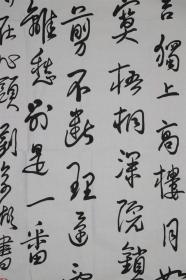 言獨上高樓月如
寞梧桐深院鎖
剪不斷理還
離愁別是一番
在心頭劉書